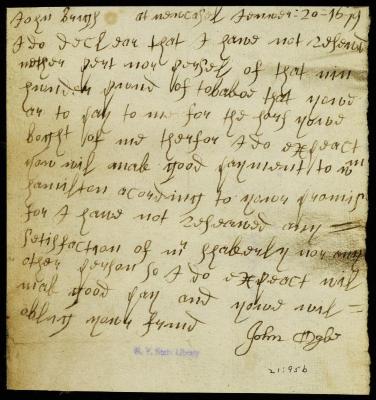 John Brigh at newcasel Jenuer: 20=1679
I do declear that I have not reseved
nether pert nor persel of that nin
hunder pound of tobacoe that youe
ar to pay to me for the hors youe
boght of me therfor I do expeact
youe wil mak good payment to mr
hamilton acording to youor promis
for I have not reseaved any
setisfaction of mr shakerly nor any
other person so I do expeact wil
mak good pay and youe wil =
oblig youor friind
John Ogbe
N. Y. State Library
21:956